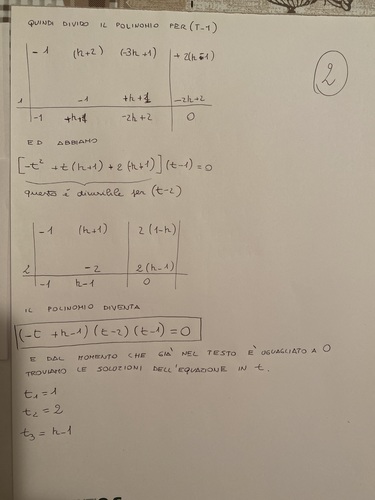 QUINDI DIVIDO IL POLINOMIO PER (T-1)
-1 (h+2) (-3h+1) +2(h-1)
1 -1 +h+1 -2h+2
-1 +h+1 -2h+2 0
ED ABBIAMO
[-t² + t(h+1) + 2(h+1)](t-1)=0
questo è divisibile per (t-2)
-1 (h+1) 2(1-h)
2 -2 2(h-1)
-1 h-1 0
IL POLINOMIO DIVENTA
(-t +h-1) (t-2) (t-1) = 0
E DAL MOMENTO CHE GIÀ NEL TESTO È UGUAGLIATO A 0
TROVIAMO LE SOLUZIONI DELL'EQUAZIONE IN t.
t₁=1
t₂=2
t₃=h-1
2